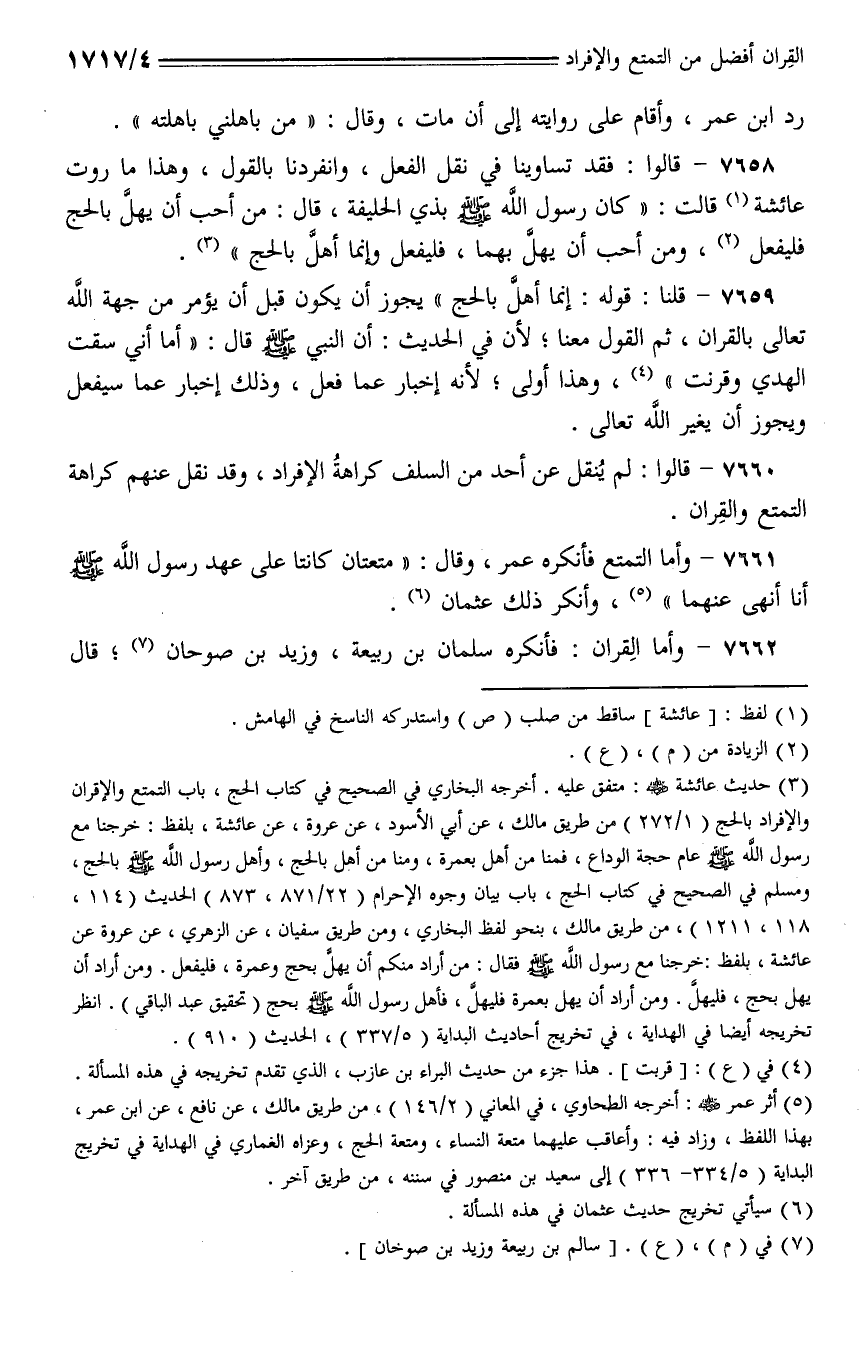 القِران أفضل من التمتع والإفراد ١٧١٧/٤
رد ابن عمر ، وأقام على روايته إلى أن مات ، وقال : « من باهلني باهلته » .
٧٦٥٨ – قالوا : فقد تساوينا في نقل الفعل ، وانفردنا بالقول ، وهذا ما روت
عائشة (١) قالت : « كان رسول اللَّه ﷺ بذي الحليفة ، قال : من أحب أن يهلَّ بالحج
فليفعل (٢) ، ومن أحب أن يهلَّ بهما ، فليفعل وإنما أهلَّ بالحج » (٣) .
٧٦٥٩ – قلنا : قوله : إنما أهلَّ بالحج » يجوز أن يكون قبل أن يؤمر من جهة اللَّه
تعالى بالقران ، ثم القول معنا ؛ لأن في الحديث : أن النبي ﷺ قال : « أما أني سقت
الهدي وقرنت » (٤) ، وهذا أولى ؛ لأنه إخبار عما فعل ، وذلك إخبار عما سيفعل
ويجوز أن يغير اللَّه تعالى .
٧٦٦٠ – قالوا : لم يُنقل عن أحد من السلف كراهةُ الإفراد ، وقد نقل عنهم كراهة
التمتع والقِران .
٧٦٦١ – وأما التمتع فأنكره عمر ، وقال : « متعتان كانتا على عهد رسول اللَّه ﷺ
أنا أنهى عنهما » (٥) ، وأنكر ذلك عثمان (٦) .
٧٦٦٢ – وأما القِران : فأنكره سلمان بن ربيعة ، وزيد بن صوحان (٧) ؛ قال
(١) لفظ : [ عائشة ] ساقط من صلب ( ص ) واستدركه الناسخ في الهامش .
(٢) الزيادة من ( م ) ، ( ع ) .
(٣) حديث عائشة رضي الله عنها : متفق عليه . أخرجه البخاري في الصحيح في كتاب الحج ، باب التمتع والإقران
والإفراد بالحج ( ٢٧٢/١ ) من طريق مالك ، عن أبي الأسود ، عن عروة ، عن عائشة ، بلفظ : خرجنا مع
رسول اللَّه ﷺ عام حجة الوداع ، فمنا من أهل بعمرة ، ومنا من أهل بالحج ، وأهل رسول اللَّه ﷺ بالحج ،
ومسلم في الصحيح في كتاب الحج ، باب بيان وجوه الإحرام ( ٨٧١/٢٢ ، ٨٧٣ ) الحديث ( ١١٤ ،
١١٨ ، ١٢١١ ) ، من طريق مالك ، بنحو لفظ البخاري ، ومن طريق سفيان ، عن الزهري ، عن عروة عن
عائشة ، بلفظ :خرجنا مع رسول اللَّه ﷺ فقال : من أراد منكم أن يهلَّ بحج وعمرة ، فليفعل . ومن أراد أن
يهل بحج ، فليهلَّ . ومن أراد أن يهل بعمرة فليهلَّ ، فأهل رسول اللَّه ﷺ بحج ( تحقيق عبد الباقي ) . انظر
تخريجه أيضا في الهداية ، في تخريج أحاديث البداية ( ٣٣٧/٥ ) ، الحديث ( ٩١٠ ) .
(٤) في ( ع ) : [ قربت ] . هذا جزء من حديث البراء بن عازب ، الذي تقدم تخريجه في هذه المسألة .
(٥) أثر عمر رضي الله عنه : أخرجه الطحاوي ، في المعاني ( ١٤٦/٢ ) ، من طريق مالك ، عن نافع ، عن ابن عمر ،
بهذا اللفظ ، وزاد فيه : وأعاقب عليهما متعة النساء ، ومتعة الحج ، وعزاه الغماري في الهداية في تخريج
البداية ( ٣٣٤/٥– ٣٣٦ ) إلى سعيد بن منصور في سننه ، من طريق آخر .
(٦) سيأتي تخريج حديث عثمان في هذه المسألة .
(٧) في ( م ) ، ( ع ) . [ سالم بن ربيعة وزيد بن صوخان ] .